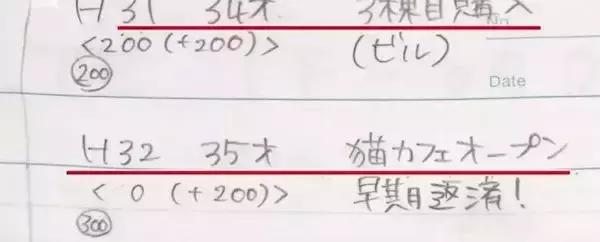 H31 34才 3棟目購入
No.
<200 (+200)> (ビル)
200
Date
H32 35才 猫カフェオープン
< 0 (+200)> 早期返済!
300